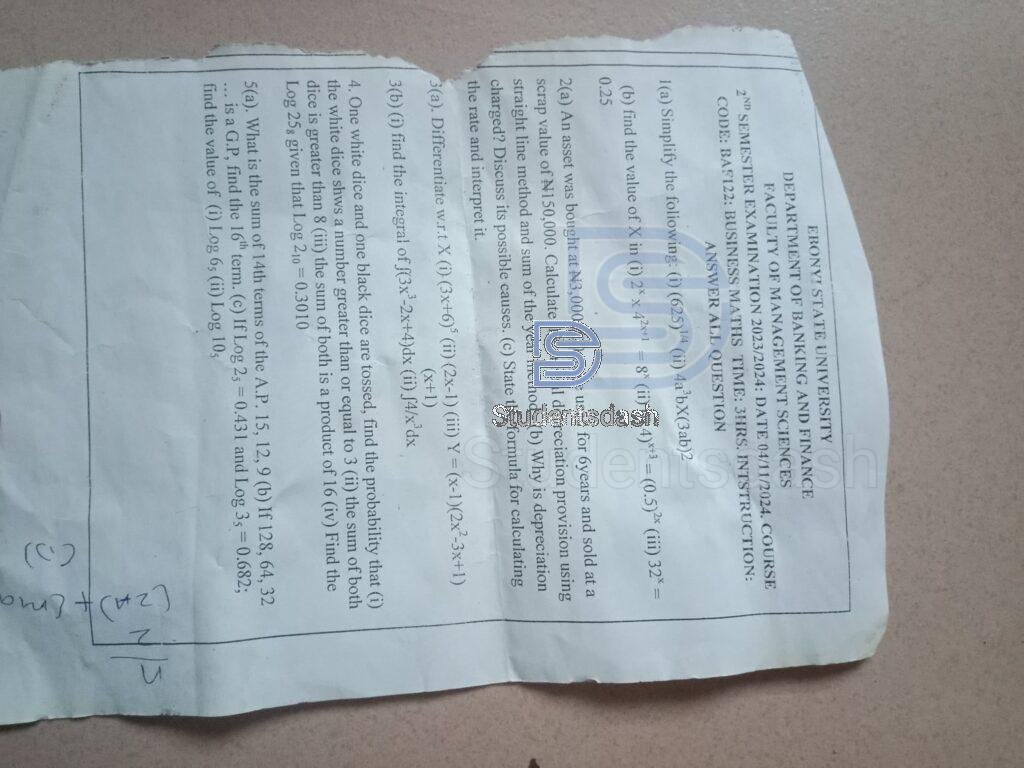 EBONYI STATE UNIVERSITY
DEPARTMENT OF BANKING AND FINANCE
FACULTY OF MANAGEMENT SCIENCES
2ND SEMESTER EXAMINATION 2023/2024: DATE 04/11/2024. COURSE
CODE: BAF122: BUSINESS MATHS TIME: 3HRS. INTSTRUCTION:
ANSWER ALL QUESTION
1(a) Simplify the following: (i) (625)^1/4 (ii) 4a³bX(3ab)2
(b) find the value of X in (i) 2ˣ x 4²ˣ⁺¹ = 8ˣ (ii) 4)ˣ⁺³ = (0.5)²ˣ (iii) 32ˣ =
0.25
2(a) An asset was bought at ₦3,000 for 6years and sold at a
scrap value of ₦150,000. Calculate depreciation provision using
straight line method and sum of the year method (b) Why is depreciation
charged? Discuss its possible causes. (c) State formula for calculating
the rate and interpret it.
3(a). Differentiate w.r.t X (i)(3x+6)⁵ (ii) (2x-1) (iii) Y = (x-1)(2x²-3x+1)
(x+1)
3(b) (i) find the integral of ∫(3x³-2x+4)dx (ii) ∫4/x³dx
4. One white dice and one black dice are tossed, find the probability that (i)
the white dice shws a number greater than or equal to 3 (ii) the sum of both
dice is greater than 8 (iii) the sum of both is a product of 16 (iv) Find the
Log 25₈ given that Log 2₁₀ = 0.3010
5(a). What is the sum of 14th terms of the A.P. 15, 12, 9 (b) If 128, 64, 32
... is a G.P, find the 16th term. (c) If Log 2₅ = 0.431 and Log 3₅ = 0.682;
find the value of (i) Log 6₅ (ii) Log 10₅
Studentsdash
Studentsdash
(i)